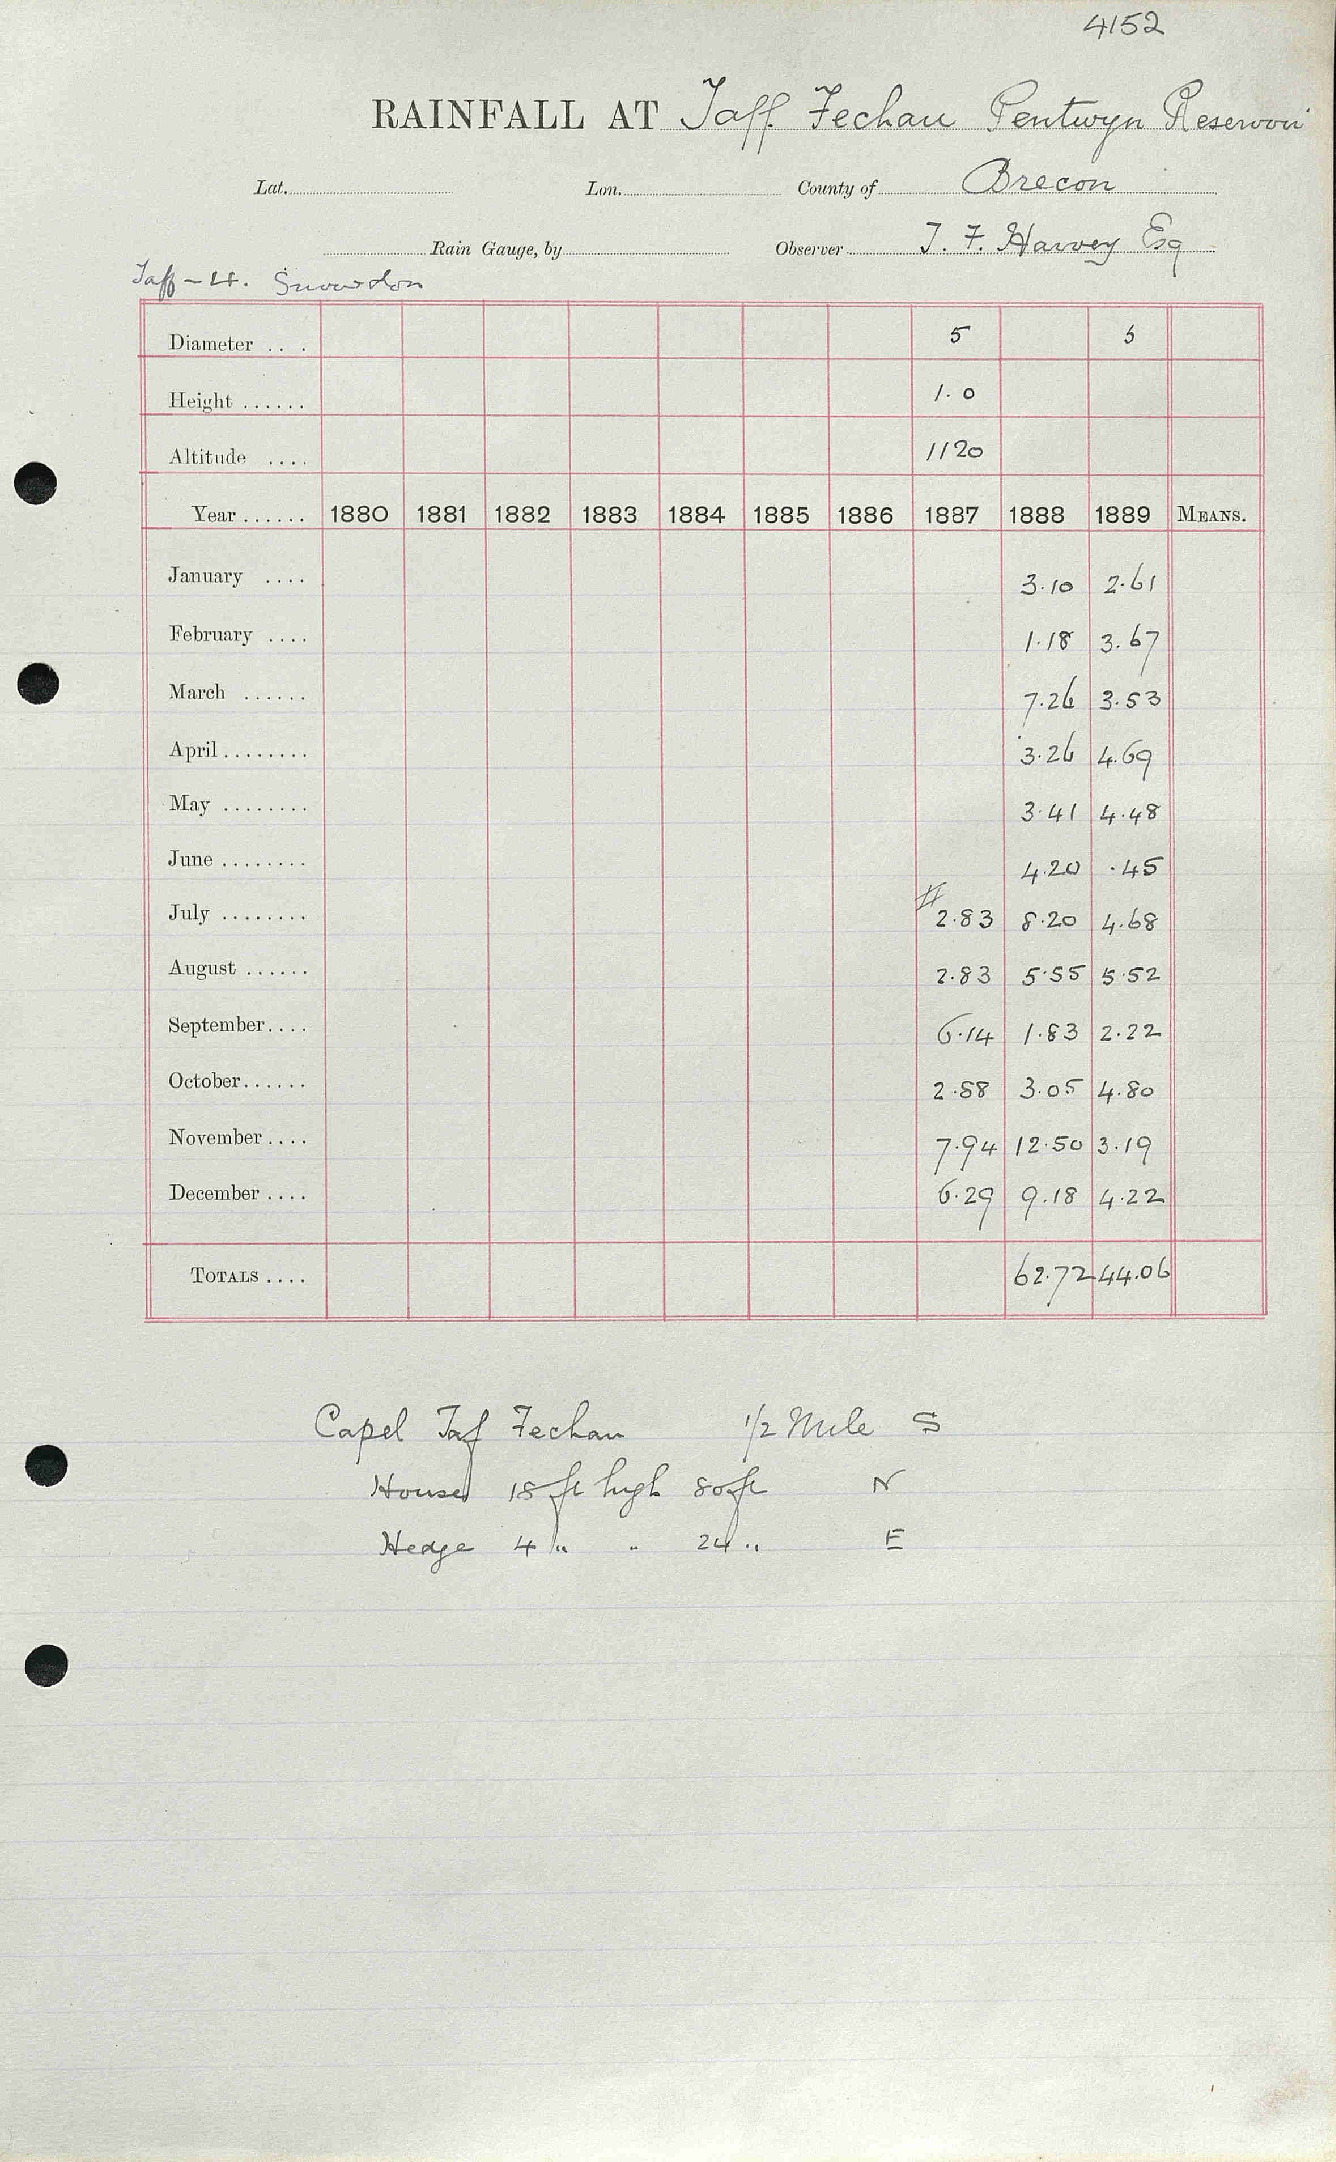 4152
RAINFALL AT Taff Fechan Pentwyn Reservoir
Lat. Lon. County of Brecon
Rain Gauge, by Observer T. F. Harvey Esq
Taff - 4. Snowdon
Diameter .. . 5 5
Height ...... 1.0
Altitude .... 1120
Year ...... 1880 1881 1882 1883 1884 1885 1886 1887 1888 1889 MEANS.
January .... 3.10 2.61
February .... 1.18 3.67
March ...... 7.26 3.53
April ........ 3.26 4.69
May ........ 3.41 4.48
June ........ 4.20 .45
July ........ # 2.83 8.20 4.68
August ...... 2.83 5.55 5.52
September.... 6.14 1.83 2.22
October...... 2.88 3.05 4.80
November.... 7.94 12.50 3.19
December.... 6.29 9.18 4.22
TOTALS .... 62.72 44.06
Capel Taf Fechan 1/2 Mile S
House 18 ft high 80 ft N
Hedge 4 " " 24 " E